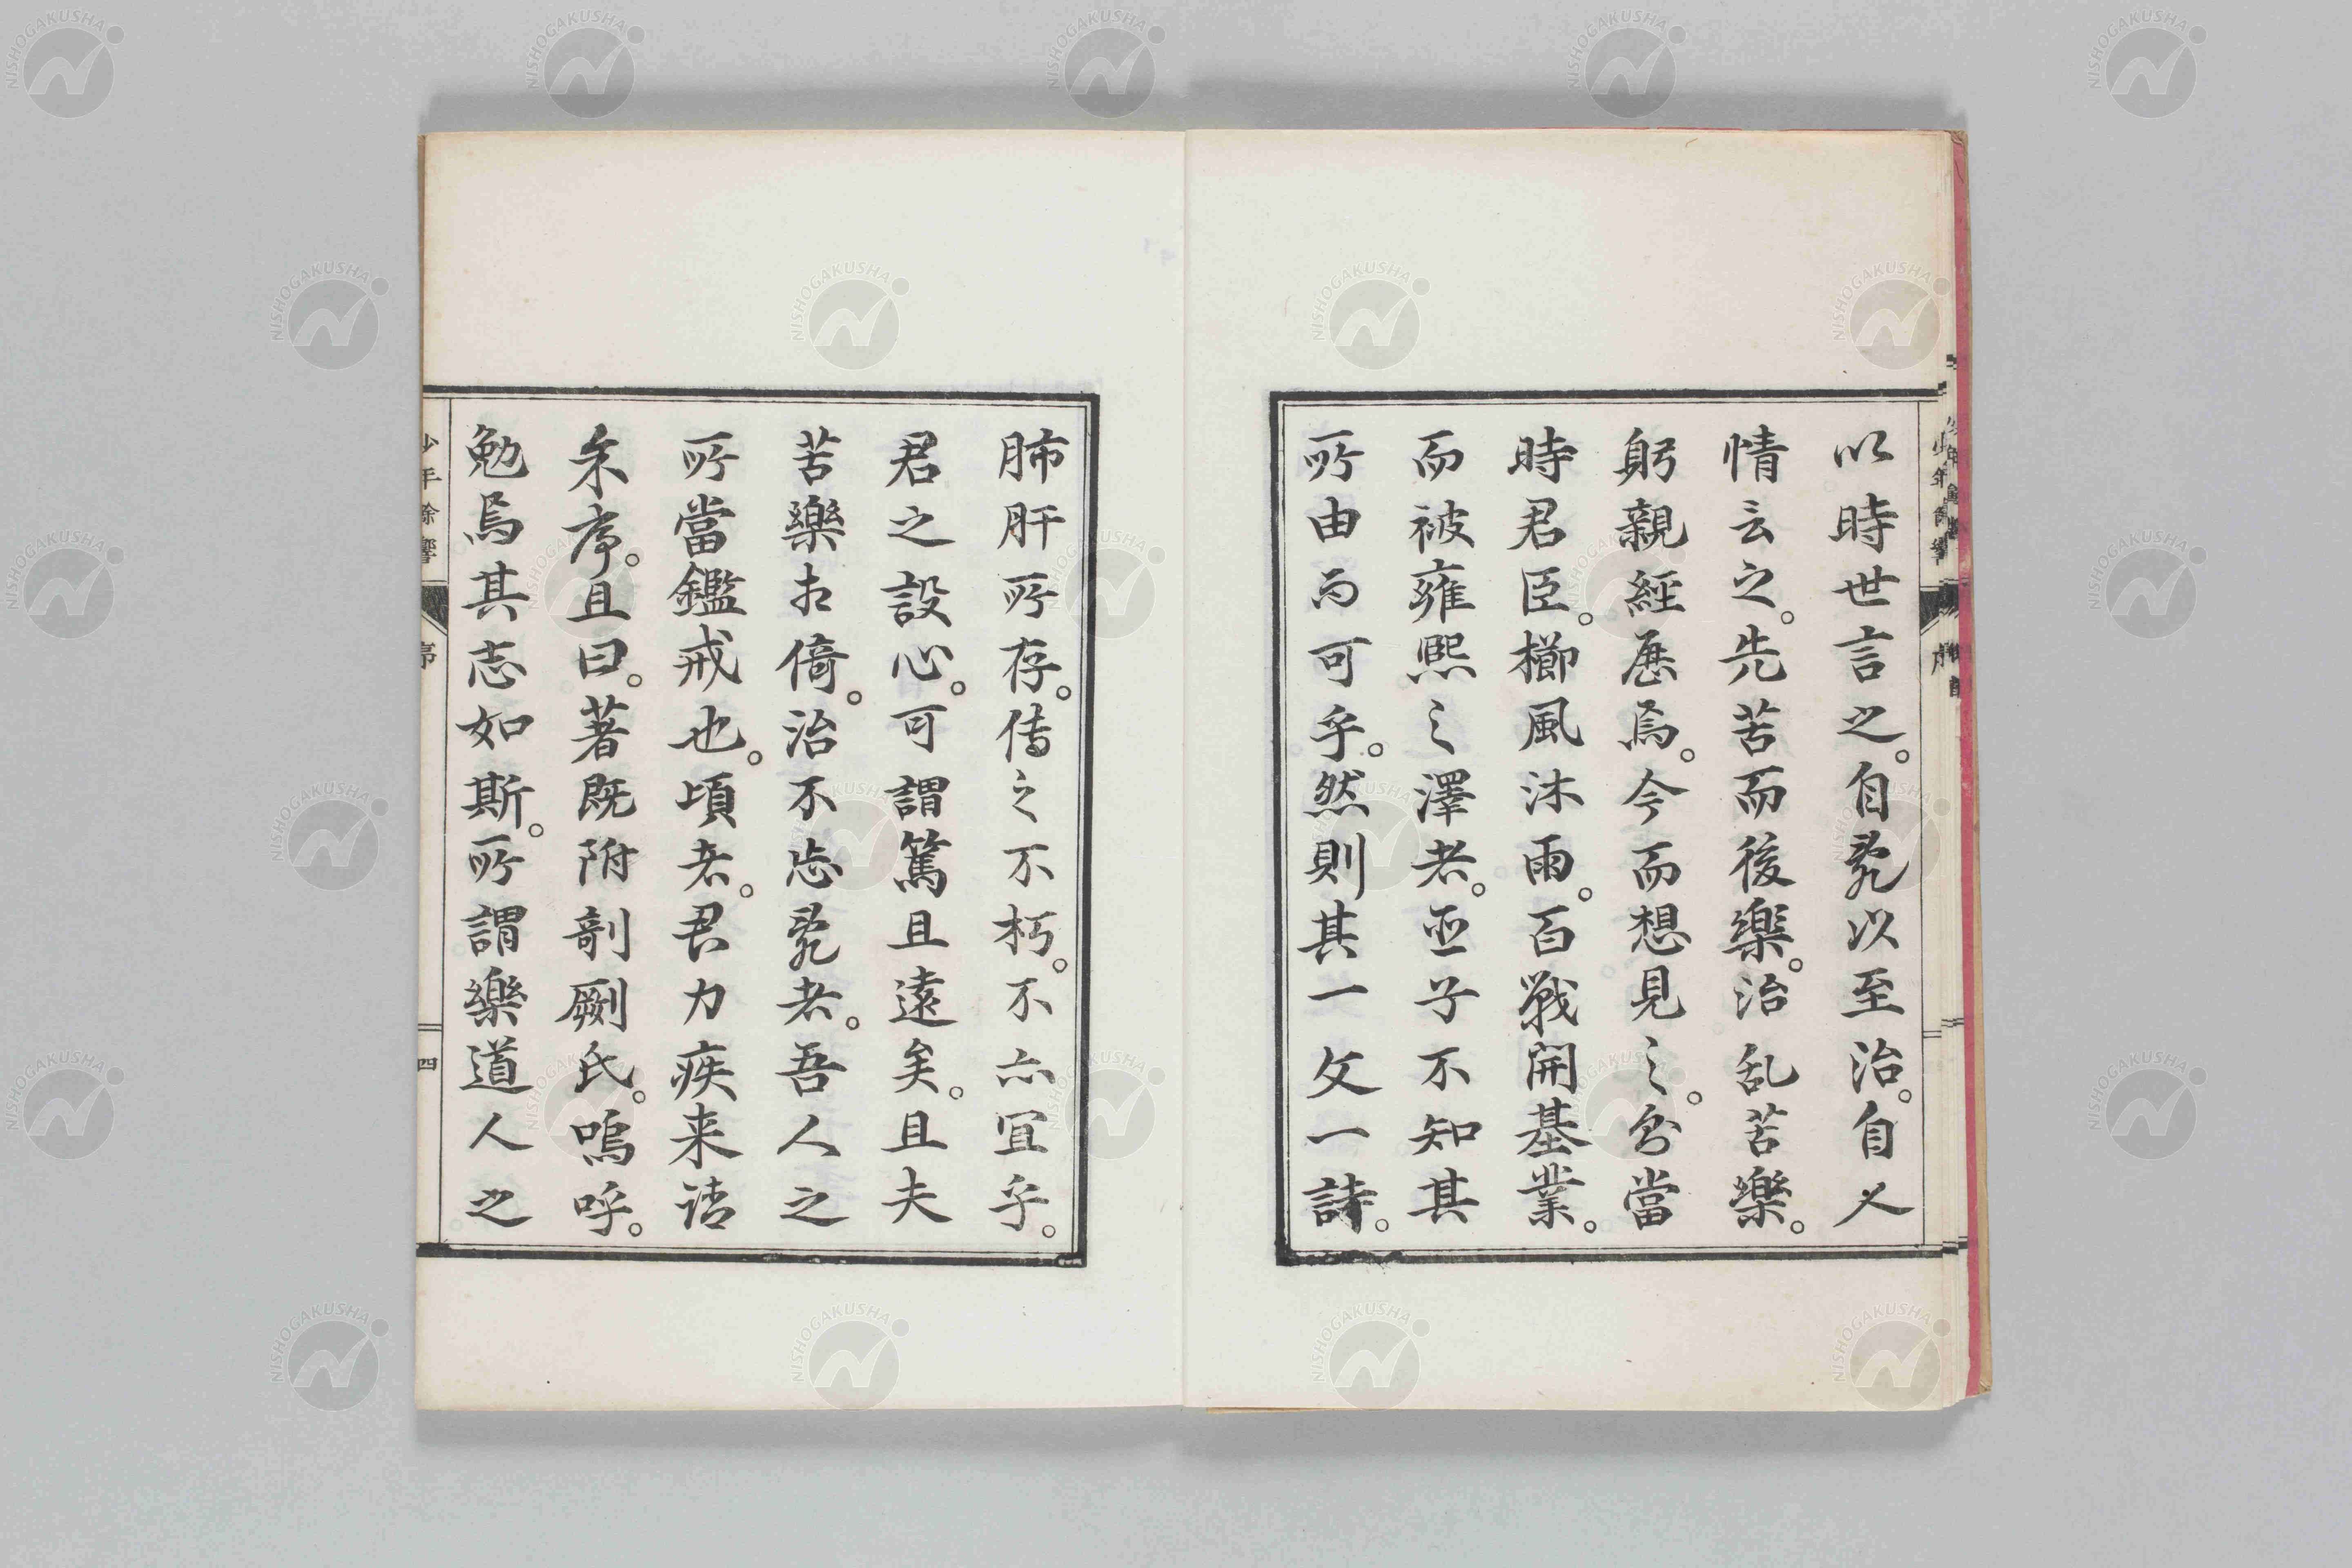 以時世言之。自乱以至治。自人
情云之。先苦而後樂。治乱苦樂。
躬親經歷焉。今而想見之。分當
時君臣。櫛風沐雨。百戰開基業。
而被雍熙之澤者。亞子不知其
所由而可乎。然則其一文一詩。
肺肝所存。传之不朽。不亦冝乎。
君之設心。可謂篤且遠矣。且夫
苦樂相倚。治不忘乱者。吾人之
所當鑑戒也。頃者。君力疾来请
余序。且曰。著既附剞劂氏。嗚呼。
勉焉其志如斯。所謂樂道人之
少年餘響
序
四
NISHOGAKUSHA